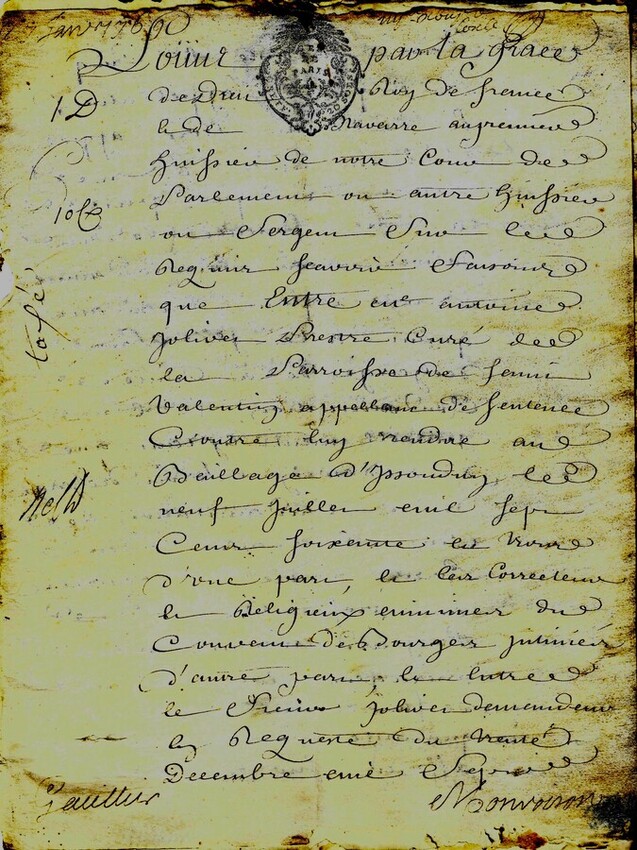 Louis par la Grace
de Dieu Roy de france
Et de Navarre au premier
huissier de notre Cour de
Parlement ou autre huissier
ou Sergent Sur le
Requis scavoir faisons
que Entre me antoine
Jolivet Prestre Curé de
la Parroisse de saint
Valentin appellant de sentence
Contre luy rendue au
Bailliage d'Issoudun le
neuf Juillet mil sept
Cent soixante
d'une part, et les Correcteur
et Religieux minimes du
Couvent de Bourges intimés
d'autre part et Entre
le Sieur Jolivet demandeur
En Requeste du trente
Decembre mil Sept